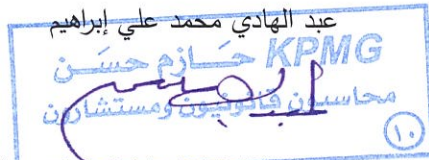 عبد الهادي محمد علي إبراهيم
KPMG حازم حسن
محاسبون قانونيون ومستشارون
١٠